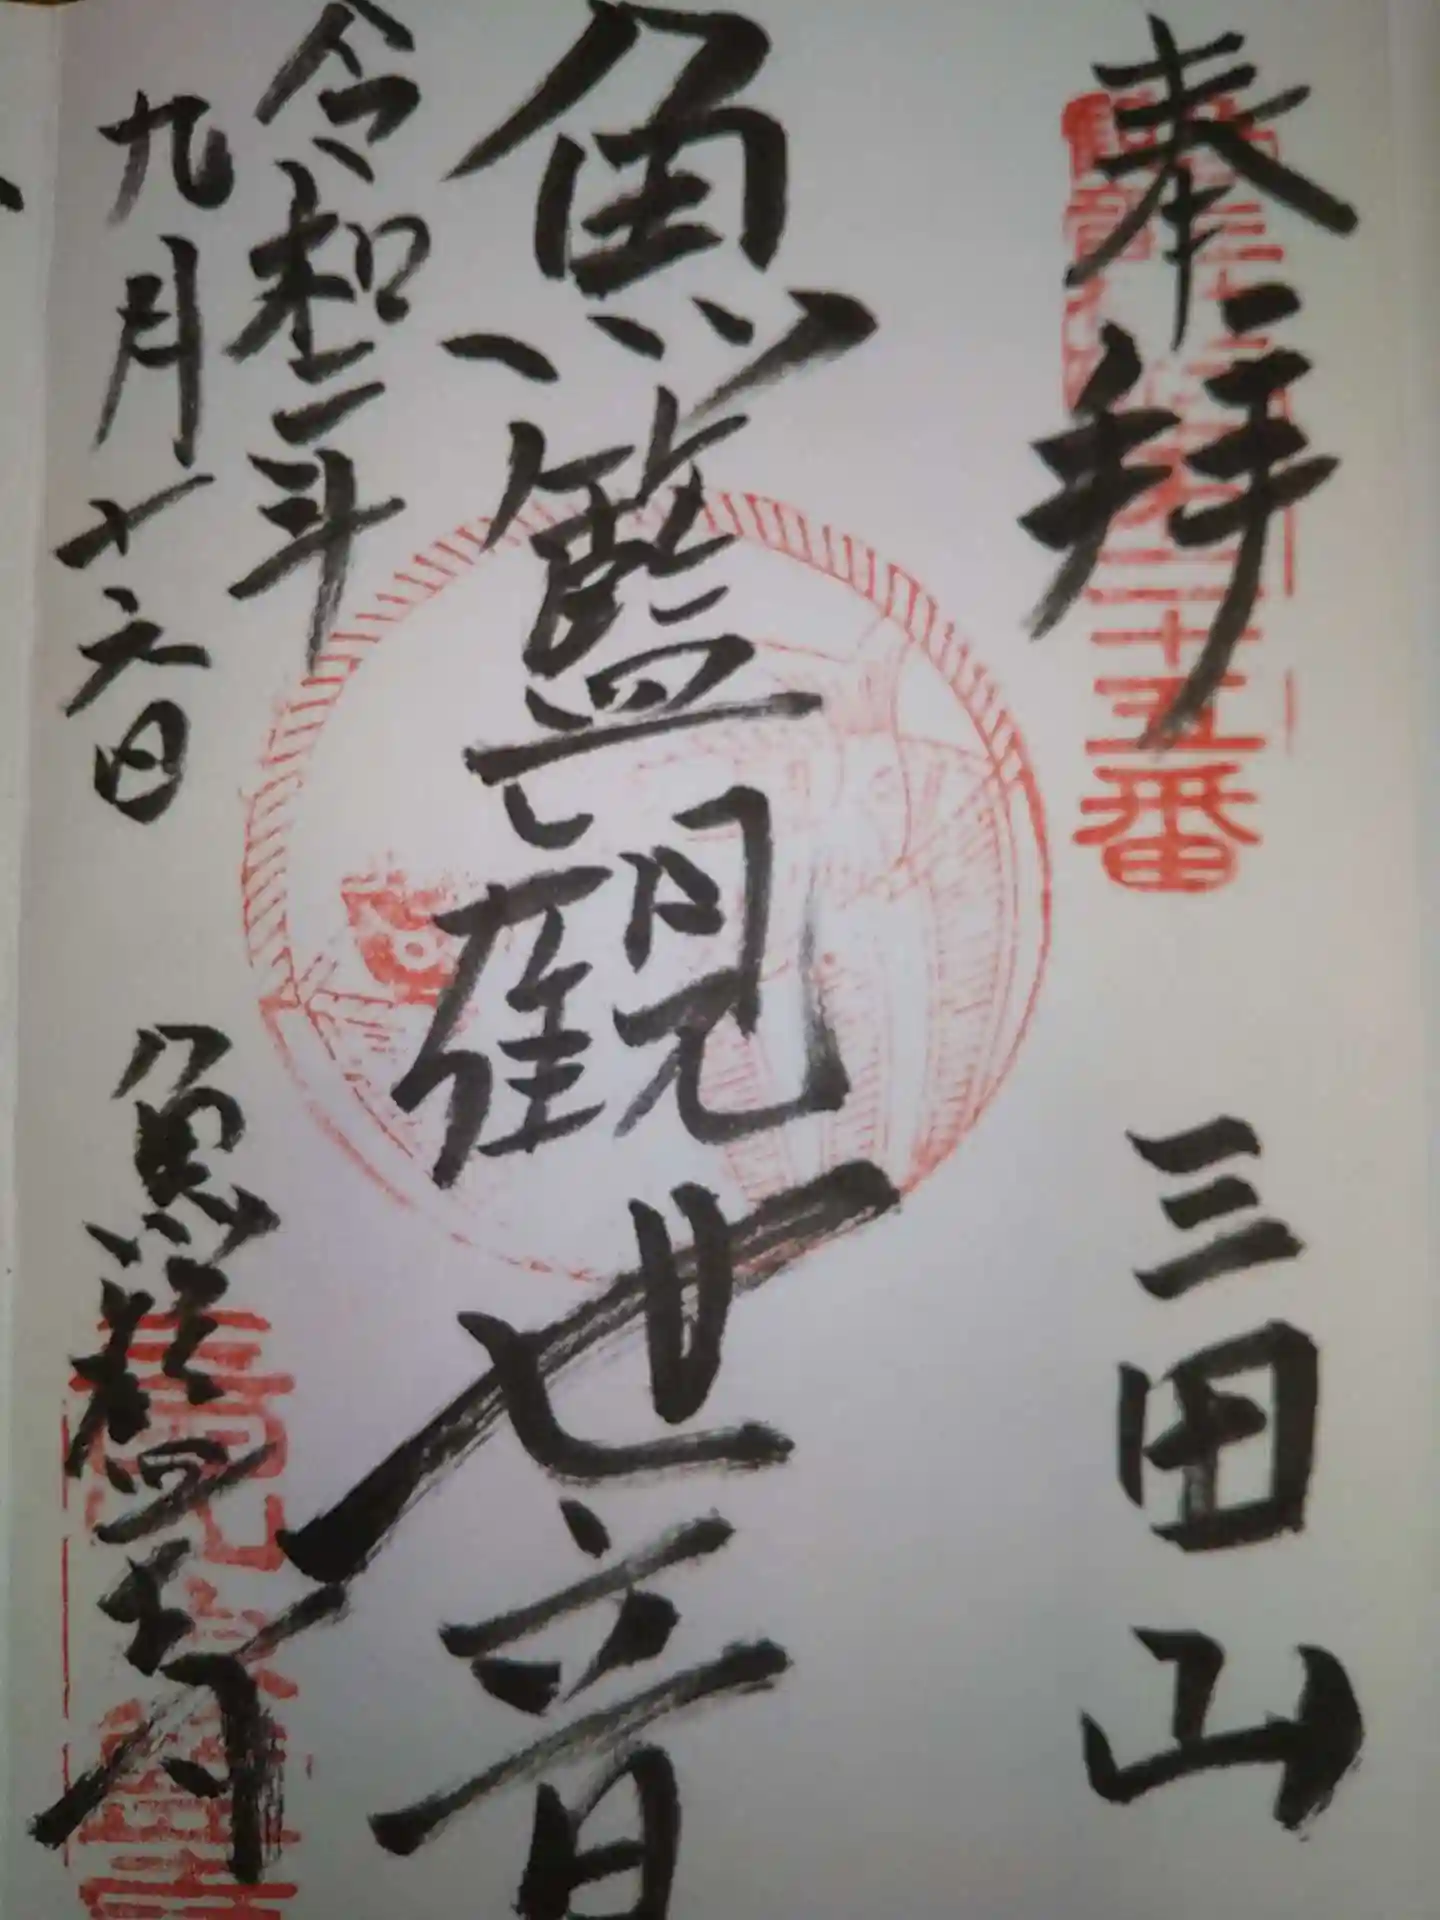 奉拝
三田山
二十五番
魚籃観世音
令和二年
九月十六日
魚籃寺